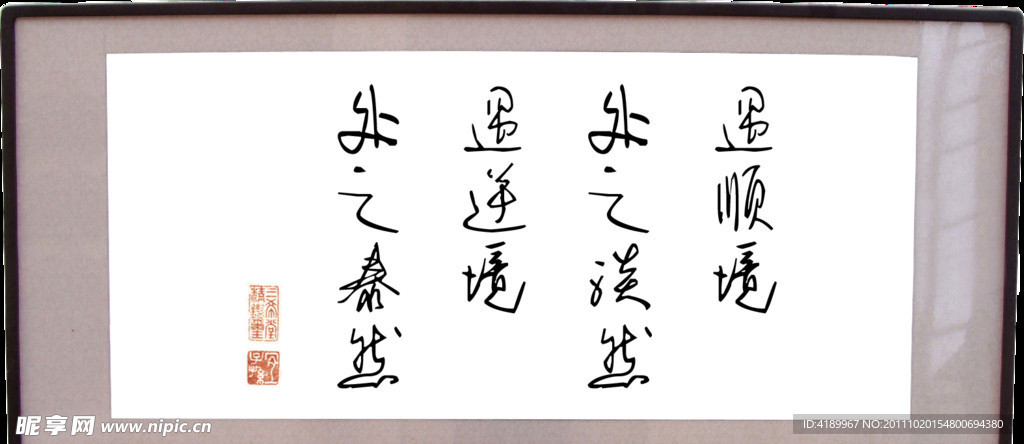 遇顺境
处之淡然
遇逆境
处之泰然
三希堂精鉴玺
宜子孙
昵享网 www.nipic.cn
ID:4189967 NO:20111020154800694380